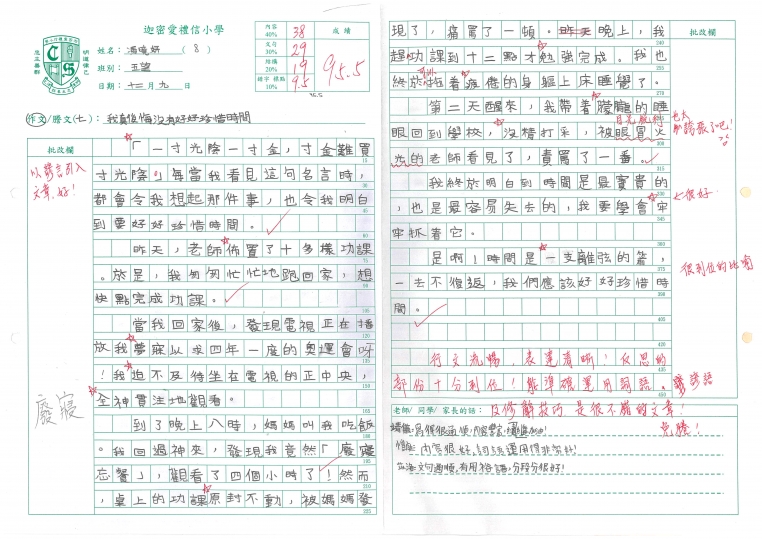 迦密愛禮信小學
姓名：馮曉妍（8）
班別：五望
日期：十二月九日
內容 40% 38
文句 30% 29
結構 20% 19
錯字 標點 10% 9.5
成績
95.5
作文/謄文(七)：我真後悔沒有好好珍惜時間
批改欄
以諺言引入
文章，好！
「一寸光陰一寸金，寸金難買
寸光陰」每當我看見這句名言時，
都會令我想起那件事，也令我明白
到要好好珍惜時間。
昨天，老師佈置了十多樣功課
。於是，我匆匆忙忙地跑回家，想
快點完成功課。
當我回家後，發現電視正在播
放我夢寐以求四年一度的奧運會呀
！我迫不及待坐在電視的正中央，
全神貫注地觀看。
廢寢
到了晚上八時，媽媽叫我吃飯
。我回過神來，發現我竟然「廢寢
忘餐」，觀看了四個小時了！然而
，桌上的功課原封不動，被媽媽發
現了，痛罵了一頓。昨天晚上，我
趕功課到十二點才勉強完成。我也
終於拖着疲倦的身軀上床睡覺了。
第二天醒來，我帶着朦朧的睡
眼回到學校，沒精打采，被眼冒火
光的老師看見了，責罵了一番。
目光銳利
也太
誇張了吧！
我終於明白到時間是最寶貴的
，也是最容易失去的，我要學會牢
牢抓着它。
很好
是啊！時間是一支離弦的箭，
一去不復返，我們應該好好珍惜時
間。
很到位的比喻
批改欄
行文流暢，表達清晰！反思的
部份十分到位！能準確運用詞語、諺語
及修辭技巧，是很不錯的文章！
老師/ 同學/ 家長的話：
內容很好，詞語運用得非常好！
文句通順，有用諺語，分段分很好！